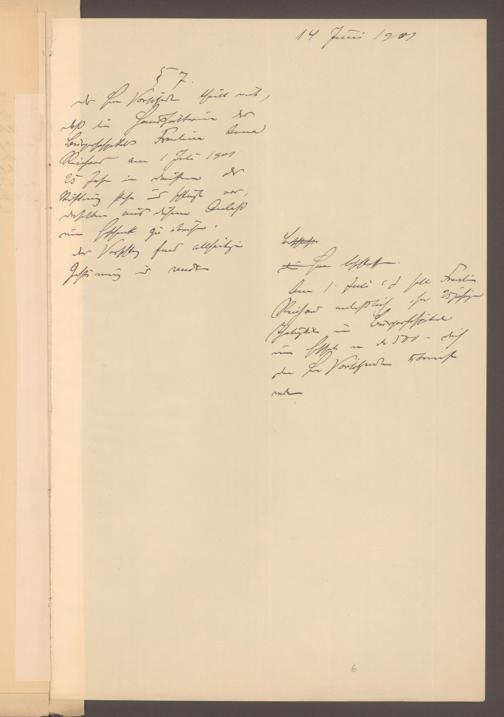 14 Juni 1901
§ 7.
der Herr Vorsitzende theilt mit,
daß die Haushälterin des
Bürgerspitals Fräulein Anna
Reichard am 1 Juli 1901
25 Jahre in Diensten der
Stiftung stehe und schlägt vor,
derselben aus diesem Anlaß
ein Geschenk zu
der Vorschlag fand allseitige
Zustimmung u. wurde
beschlossen.
Am 1. Juli d. J. soll Fräulein
Reichard anläßlich ihrer 25jährigen
Thätigkeit im Bürgerspital
ein Geschenk von 500 - durch
den Herrn Vorsitzenden überreicht
werden
6